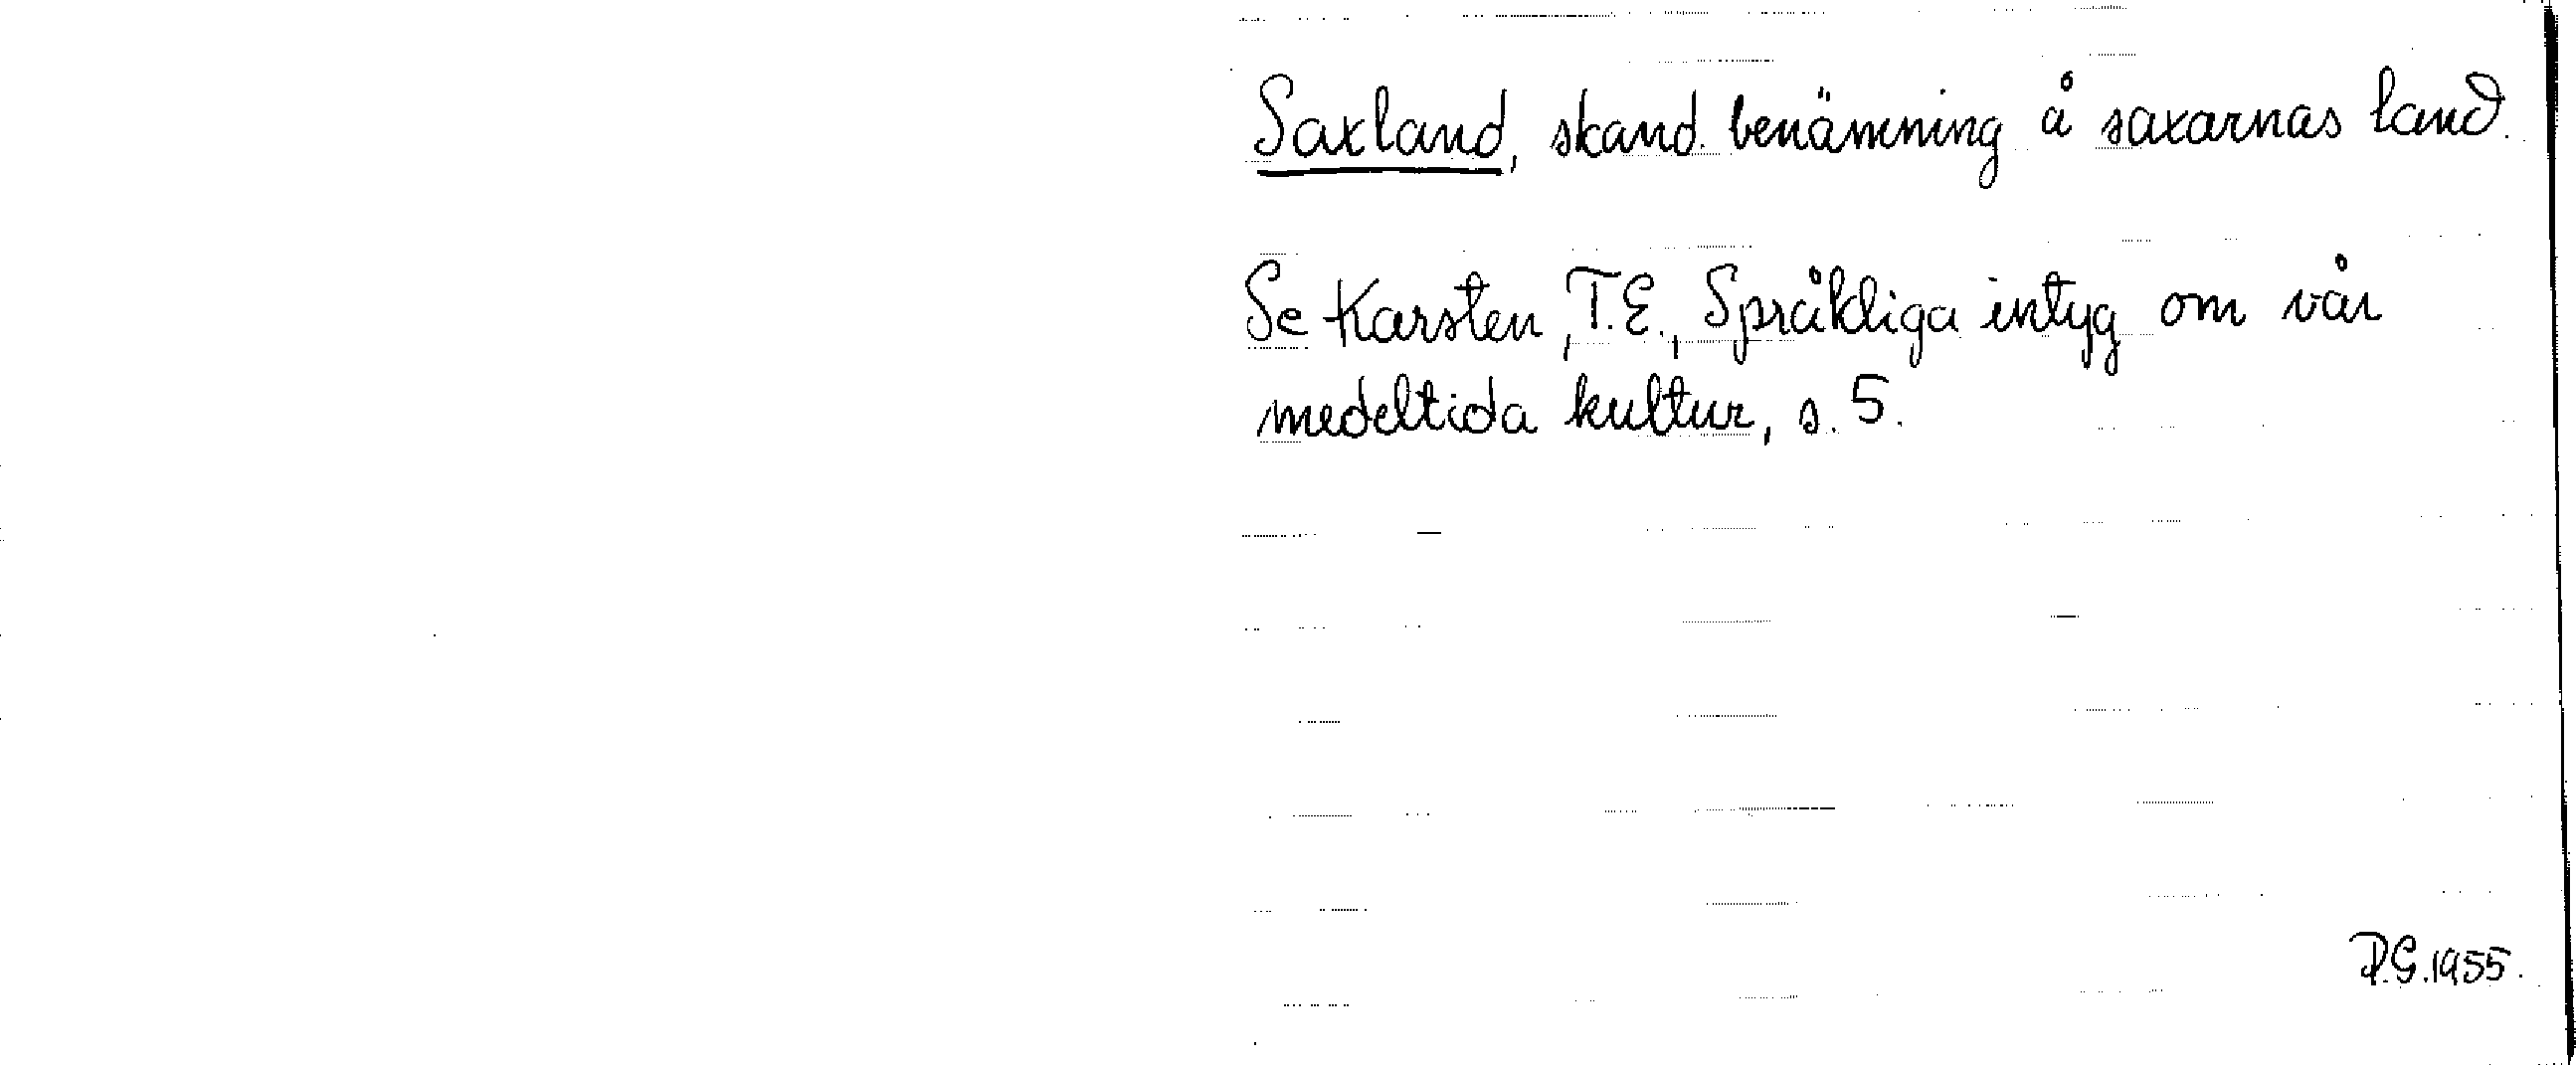 Saxland, skand. benämning å saxarnas land.
Se Karsten, T.E., Språkliga intyg om vår
medeltida kultur, s. 5.
P.G. 1955.